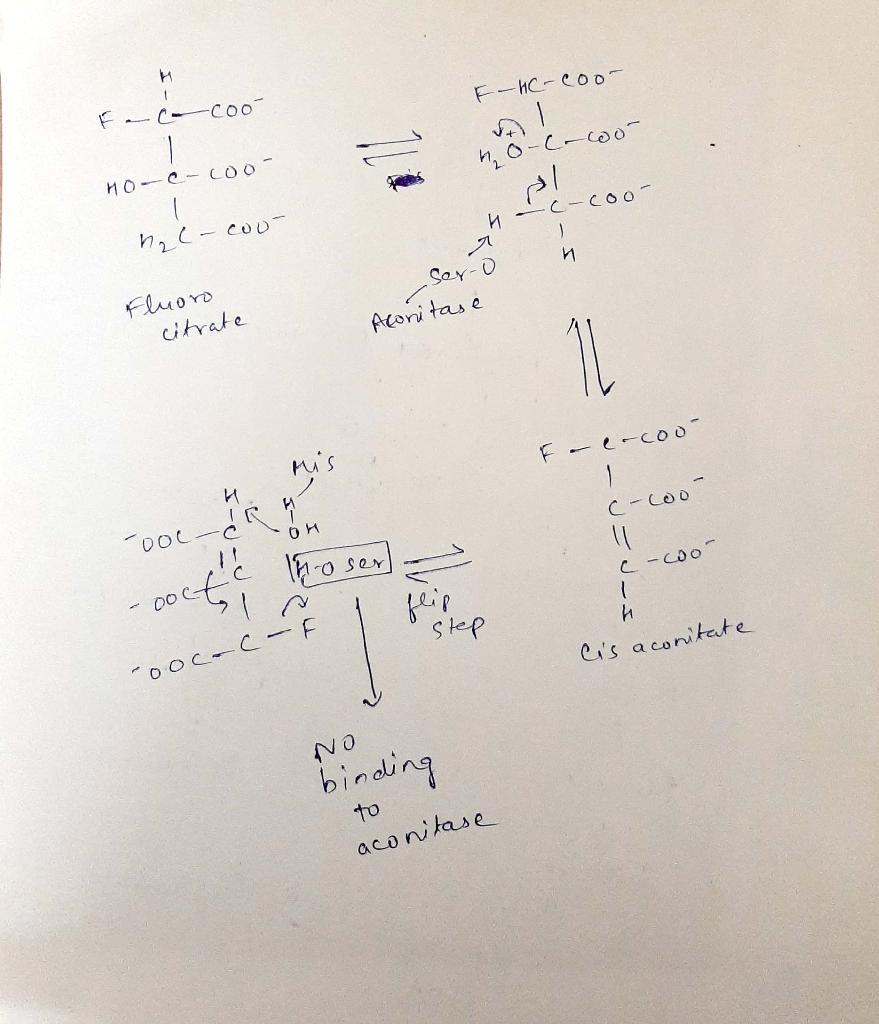 H
F - C - COO⁻
HO - C - COO⁻
H₂C - COO⁻
Fluoro
citrate
F - HC - COO⁻
H₂O⁺ - C - COO⁻
H - C - COO⁻
H
Ser-O
Aconitase
F - C - COO⁻
C - COO⁻
C - COO⁻
H
Cis aconitate
His
H
H
⁻OOC - C
OH
⁻OOC - C
H-O ser
⁻OOC - C - F
flip
step
NO
binding
to
aconitase